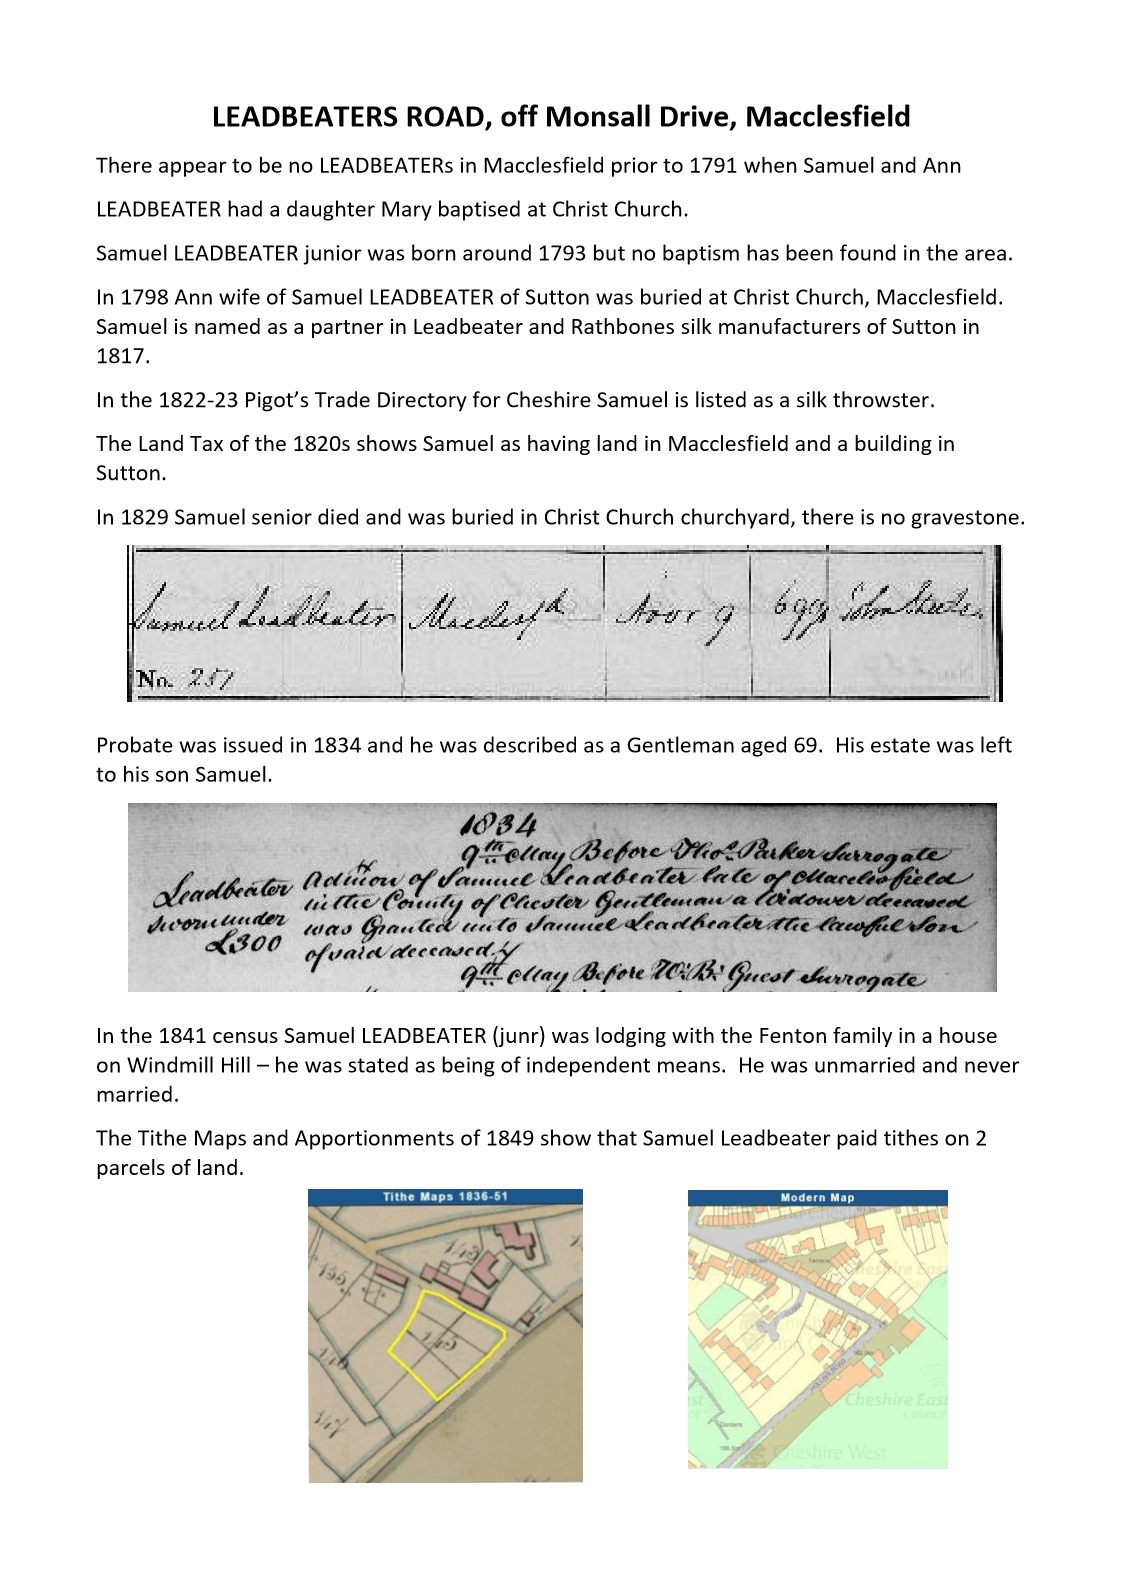 LEADBEATERS ROAD, off Monsall Drive, Macclesfield
There appear to be no LEADBEATERs in Macclesfield prior to 1791 when Samuel and Ann
LEADBEATER had a daughter Mary baptised at Christ Church.
Samuel LEADBEATER junior was born around 1793 but no baptism has been found in the area.
In 1798 Ann wife of Samuel LEADBEATER of Sutton was buried at Christ Church, Macclesfield.
Samuel is named as a partner in Leadbeater and Rathbones silk manufacturers of Sutton in
1817.
In the 1822-23 Pigot’s Trade Directory for Cheshire Samuel is listed as a silk throwster.
The Land Tax of the 1820s shows Samuel as having land in Macclesfield and a building in
Sutton.
In 1829 Samuel senior died and was buried in Christ Church churchyard, there is no gravestone.
Samuel Leadbeater Macclesfd Novr 9 69 John
No. 257
Probate was issued in 1834 and he was described as a Gentleman aged 69.  His estate was left
to his son Samuel.
1834
9th May Before Thos. Parker Surrogate
Leadbeater
sworn under
£300
Admon of Samuel Leadbeater late of Macclesfield
in the County of Chester Gentleman a Widower deceased
was Granted unto Samuel Leadbeater the lawful Son
of said deceased.
9th May Before W: B: Guest Surrogate
In the 1841 census Samuel LEADBEATER (junr) was lodging with the Fenton family in a house
on Windmill Hill – he was stated as being of independent means.  He was unmarried and never
married.
The Tithe Maps and Apportionments of 1849 show that Samuel Leadbeater paid tithes on 2
parcels of land.
Tithe Maps 1836-51
143
155
145
146
147
Modern Map
Terrace
Cheshire East
CLOSE
HOLLINS ROAD
Cheshire East
Council
Cheshire West